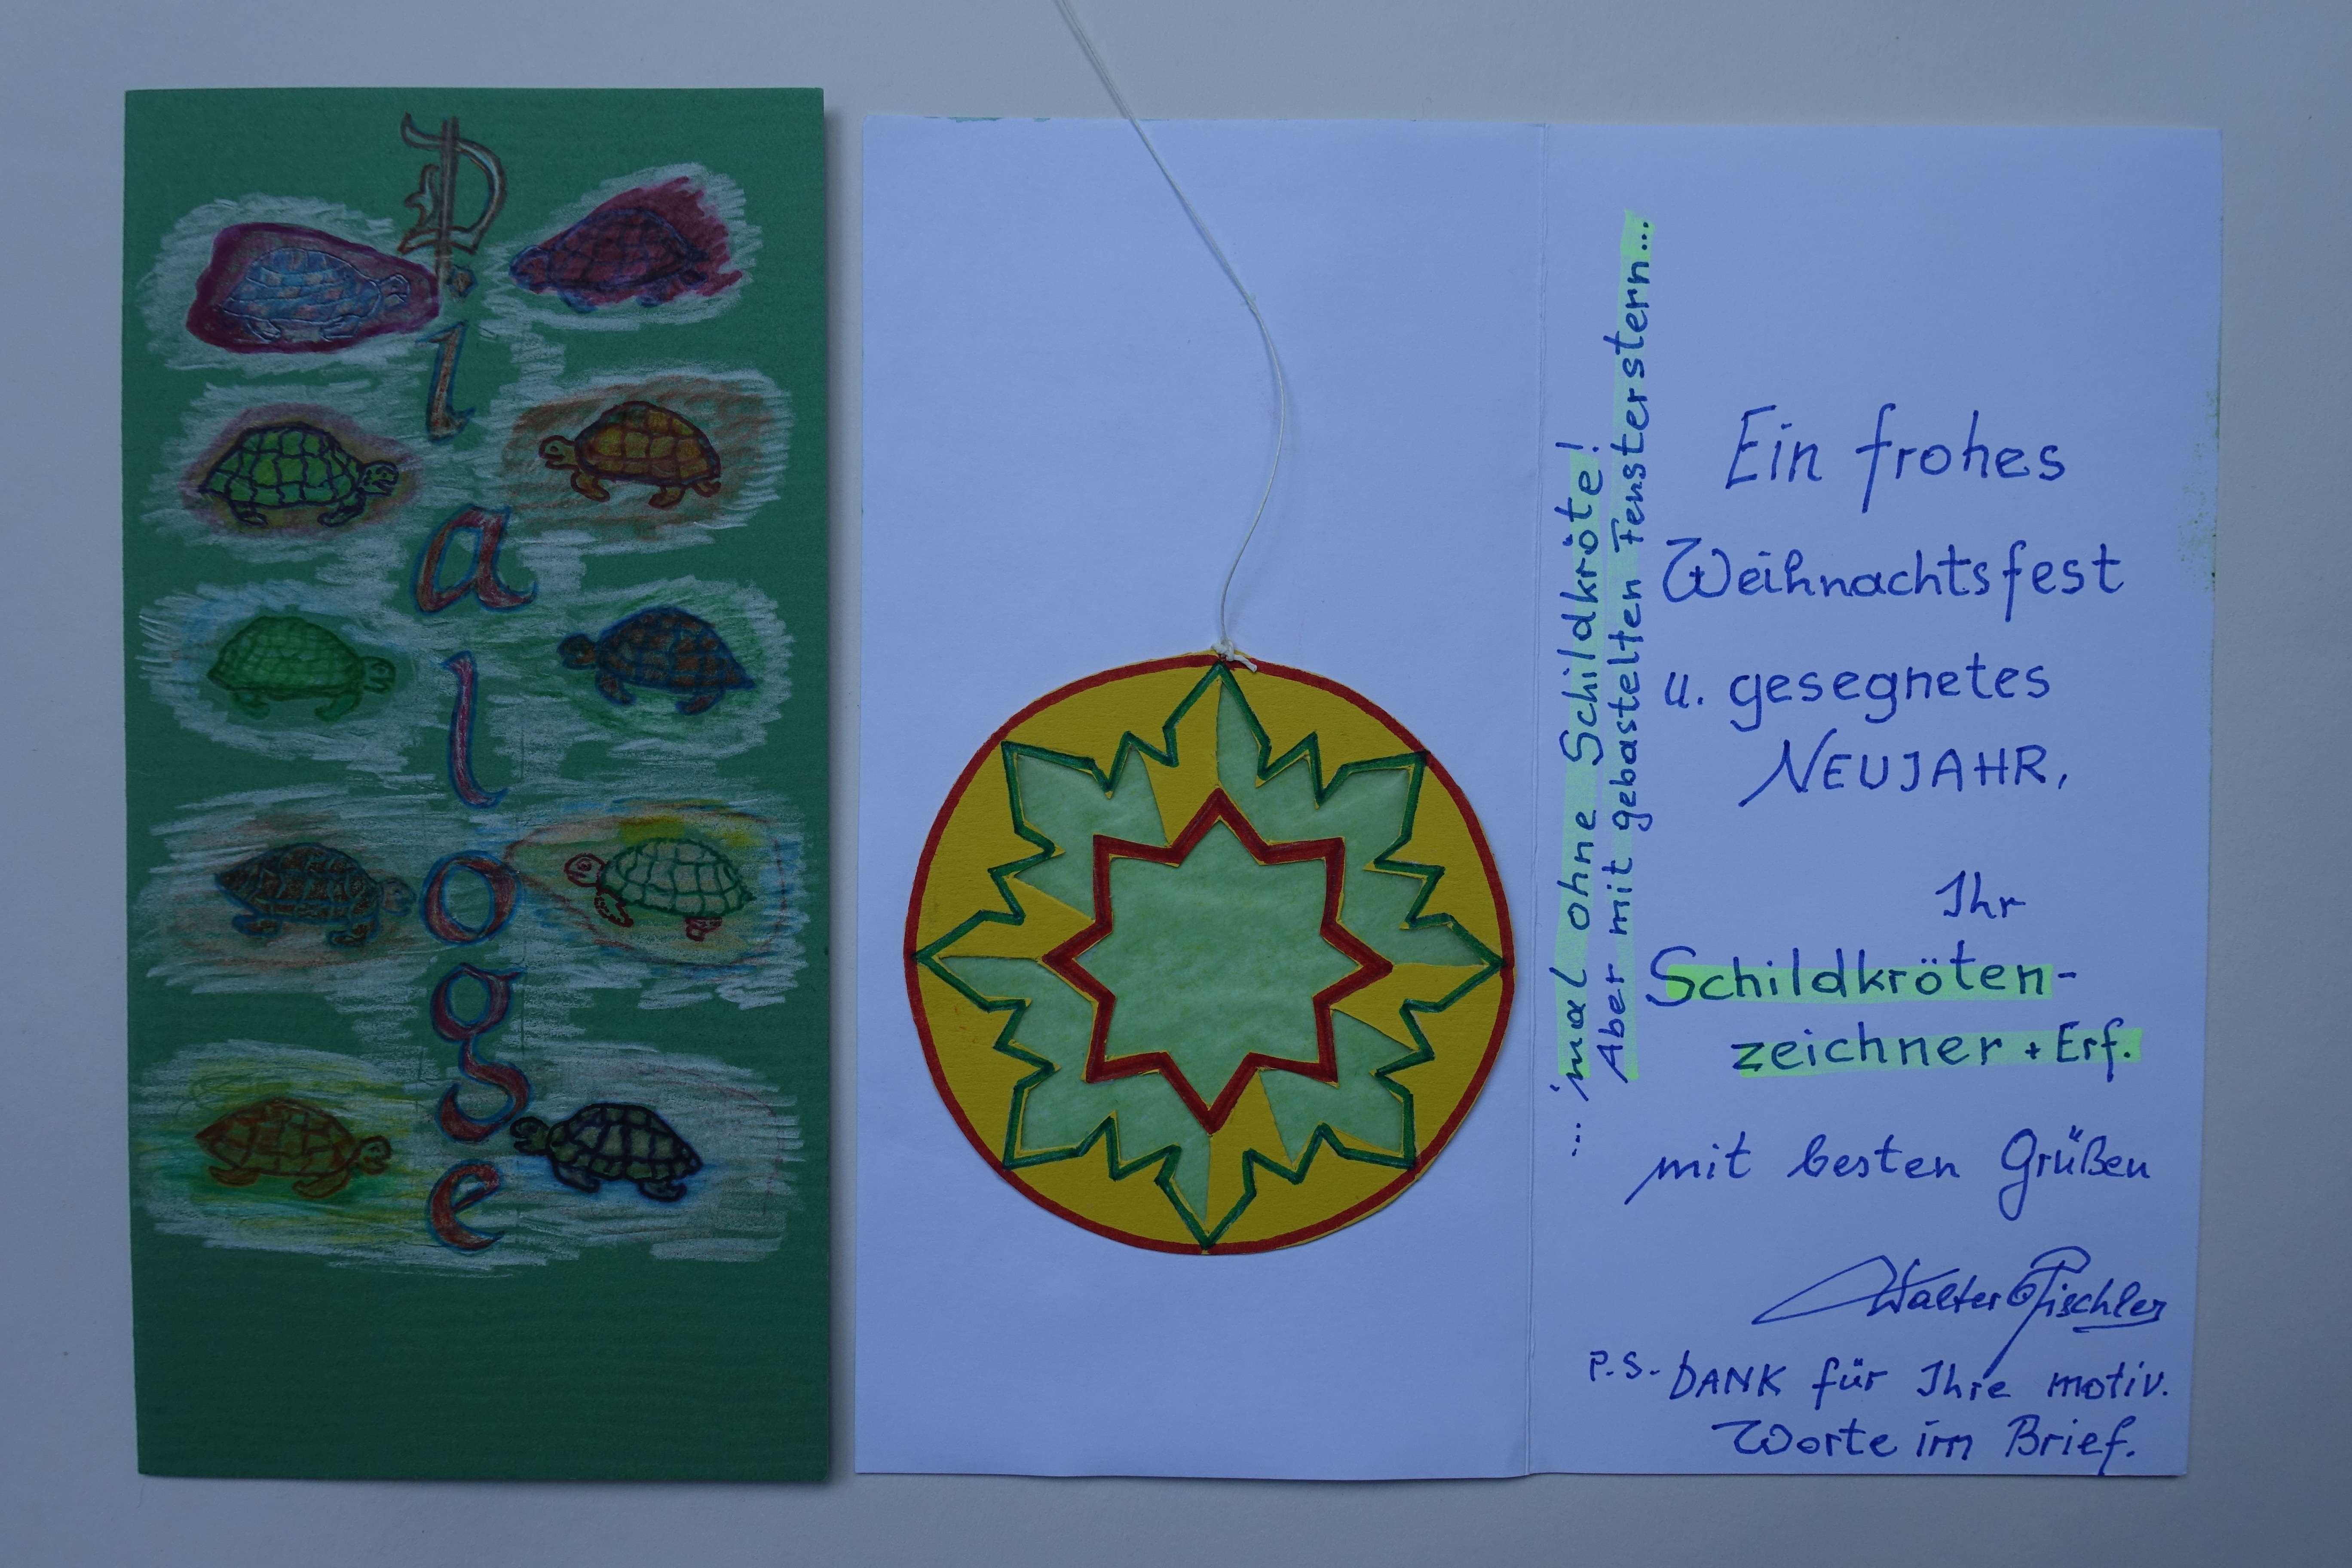 Dialoge
... mal ohne Schildkröte!
Aber mit gebastelten Fensterstern...
Ein frohes
Weihnachtsfest
u. gesegnetes
NEUJAHR,
Ihr
Schildkröten-
zeichner + Erf.
mit besten Grüßen
Walter Pischler
P.S. DANK für Ihre motiv.
Worte im Brief.